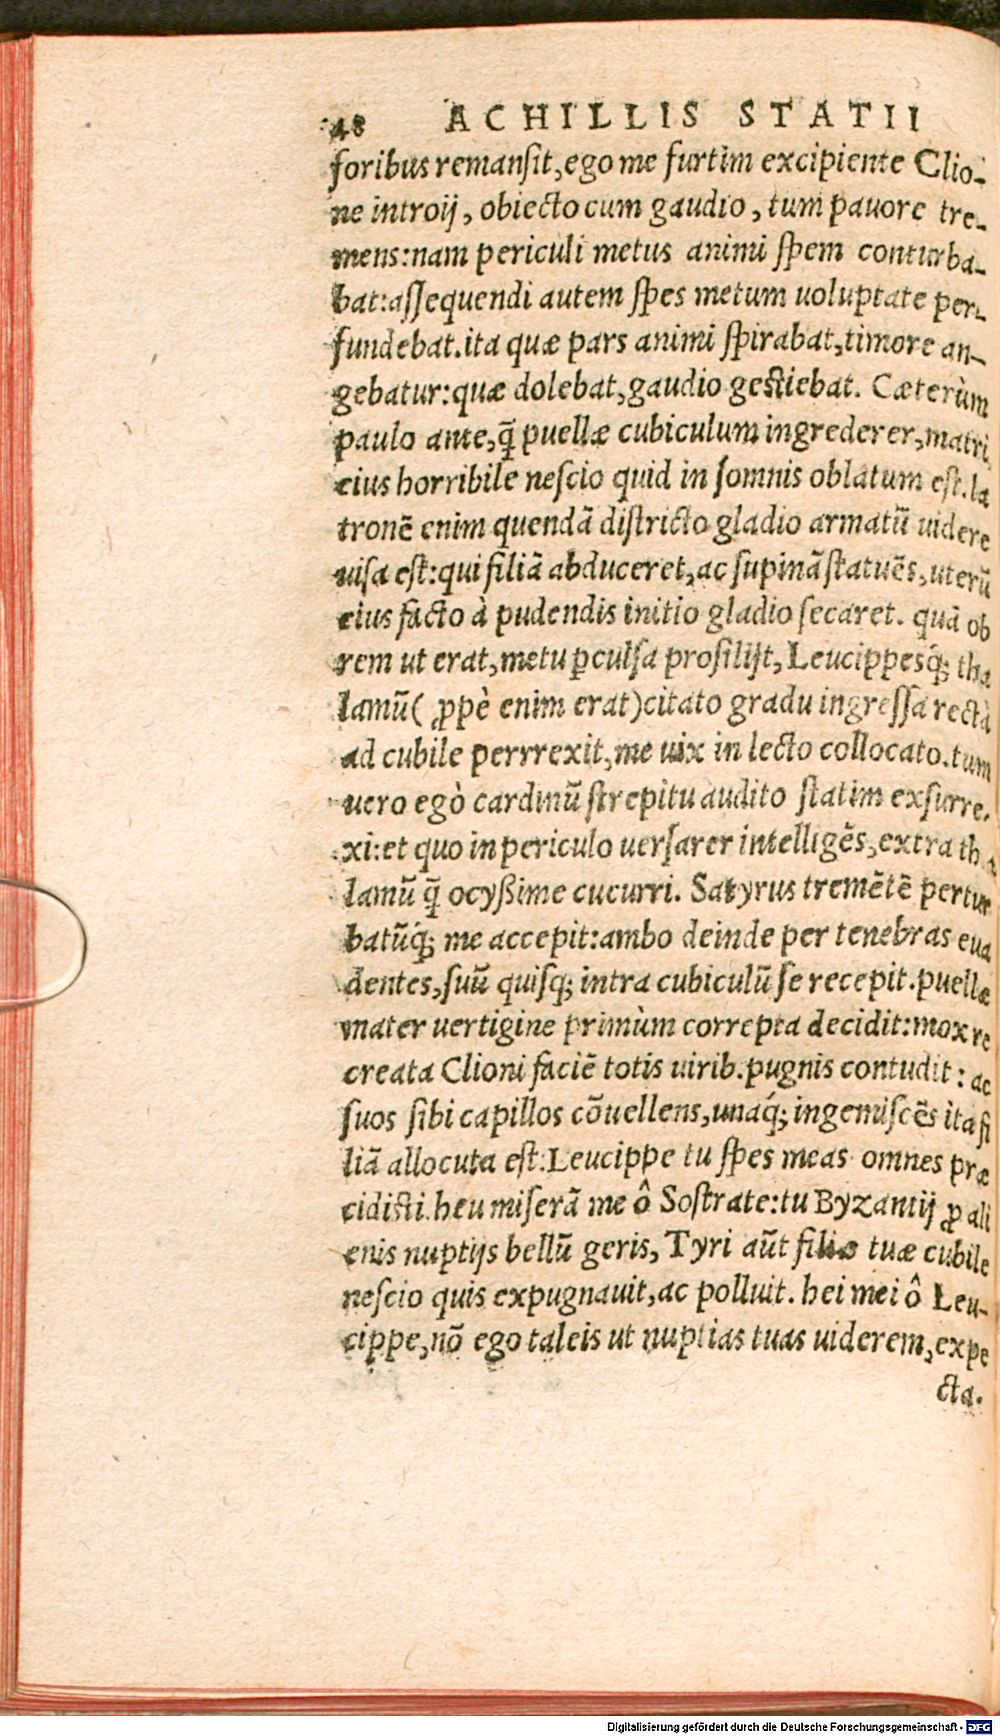 48 ACHILLIS STATII
foribus remansit, ego me furtim excipiente Clio-
ne introij, obiecto cum gaudio, tum pauore tre-
mens: nam periculi metus animi spem conturba-
bat: assequendi autem spes metum uoluptate per-
fundebat. ita quæ pars animi spirabat, timore an-
gebatur: quæ dolebat, gaudio gestiebat. Cæterùm
paulo ante, q̃ puellæ cubiculum ingrederer, matri
eius horribile nescio quid in somnis oblatum est. la
tronẽ enim quendã districto gladio armatũ uidere
uisa est: qui filiã abduceret, ac supinã statuẽs, uterũ
eius facto à pudendis initio gladio secaret. quã ob
rem ut erat, metu ꝑculsa prosilijt, Leucippesq́; tha
lamũ (ꝓpè enim erat) citato gradu ingressa rectà
ad cubile perrrexit, me uix in lecto collocato. tum
uero egò cardinũ strepitu audito statim exsurre.
xi: et quo in periculo uersarer intelligẽs, extra tha
lamũ q̃ ocyßime cucurri. Satyrus tremẽtẽ pertur
batũq́; me accepit: ambo deinde per tenebras eua
dentes, suũ quisq; intra cubiculũ se recepit. puellæ
mater uertigine primùm correpta decidit: mox re
creata Clioni faciẽ totis uirib. pugnis contudit: ac
suos sibi capillos cõuellens, unaq́; ingemiscẽs ita fi
liã allocuta est: Leucippe tu spes meas omnes præ
cidisti. heu miserã me ô Sostrate: tu Byzantij ꝓ ali
enis nuptijs bellũ geris, Tyri aũt filiæ tuæ cubile
nescio quis expugnauit, ac polluit. hei mei ô Leu-
cippe, nõ ego taleis ut nuptias tuas uiderem, expe
cta.
Digitalisierung gefördert durch die Deutsche Forschungsgemeinschaft - DFG